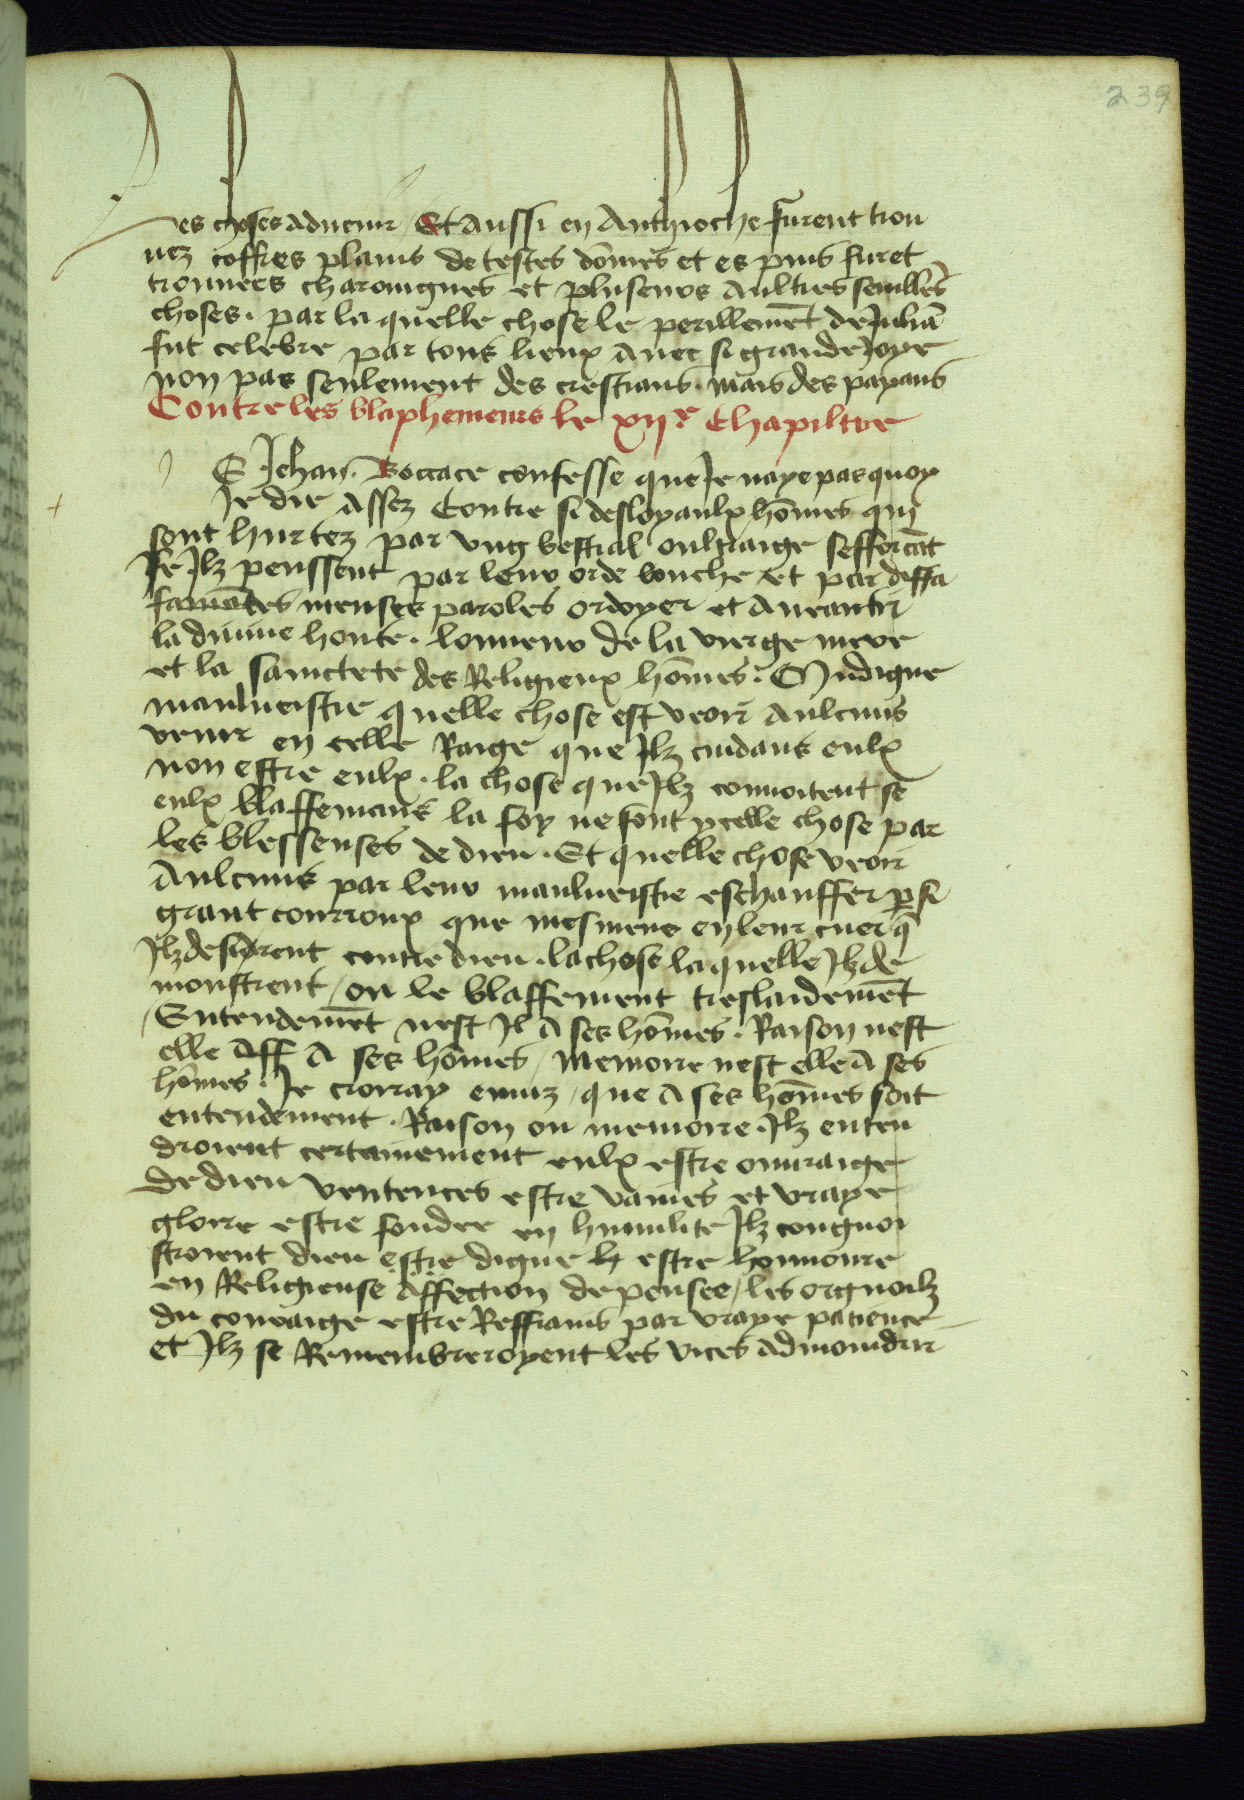 239
les choses advenir / Et aussi en Anthioche furent trou
vez coffres plains de testes dōmes et es puis furēt
trouvees charongnes et pluseurs aultres semblēs
choses . par la quelle chose le perillemēt de Juliā
fut celebre par tous lieux avec si grande Joye
non pas seulement des crestians . mais des payans
Contre les blaphemeurs le xiie Chapiltre
E Jehan . Boccace confesse que Je naye pas quoy
Je die assez contre si desloyaulx hōmes qui
sont hurtez par ung bestial oultraige sefforcāt
se Ilz peussent par leur orde bouche et par diffa
famātes menses paroles ordoyer et aneantir
la divine bonte . lonneur de la vierge mere
et la sainctete des Religieux hōmes . O Indigne
maulveistie quelle chose est veoir aulcuns
venir en celle Raige que Ilz cuidans eulx
non estre eulx . la chose que Ilz convoitent se
eulx blaffemans la foy ne font ycelle chose par
les blessenses de dieu . Et quelle chose veoir
aulcuns par leur maulveistie eschauffer p si
grant courroux que mesmens en leur cuer q̄
Ilz desirent contre dieu . la chose la quelle Ilz de
monstrent / on le blaffement treslaidemēt
/ Entendemēt nest Il a ses hōmes . Raison nest
elle Aff a ses hōmes / memoire nest elle a ses
hōmes . Je croiray enuiz / que a ses hōmes soit
entendement . Raison ou memoire . Ilz enten
droient certainement eulx estre ouvraige
de dieu ventences estre vaines et vraye
gloire estre fondee en humilite Ilz congnoi
stroient dieu estre digne estre honnoure
en Religieuse affection de pensee / les orguoilz
du couraige estre Reffrains par vraye patience
et Ilz se Remembreroyent les vices admoindrir